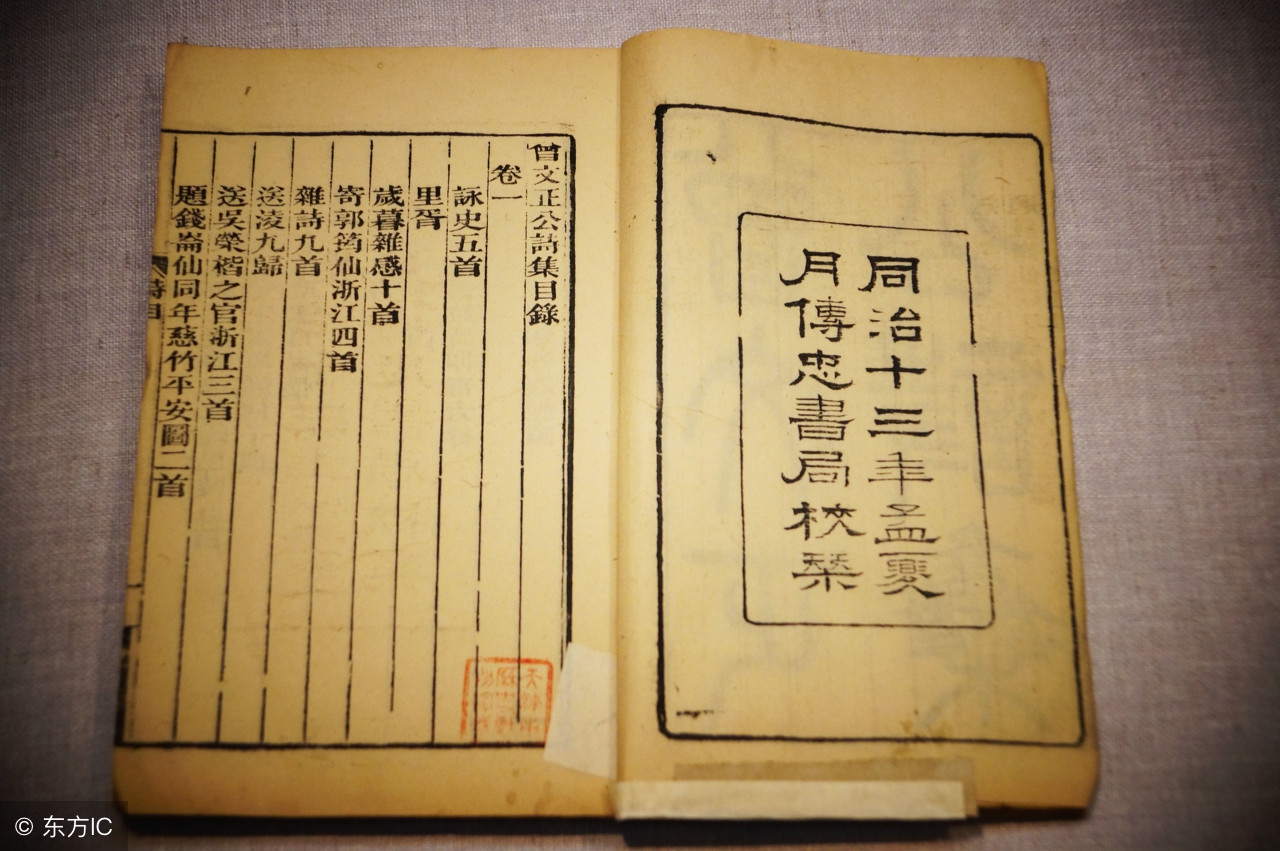 同治十三年孟夏
月傳忠書局校栞
曾文正公詩集目錄
卷一
詠史五首
里胥
歲暮雜感十首
寄郭筠仙浙江四首
雜詩九首
送凌九歸
送吳榮楷之官浙江三首
題錢崙仙同年慈竹平安圖二首
詩目
© 东方IC